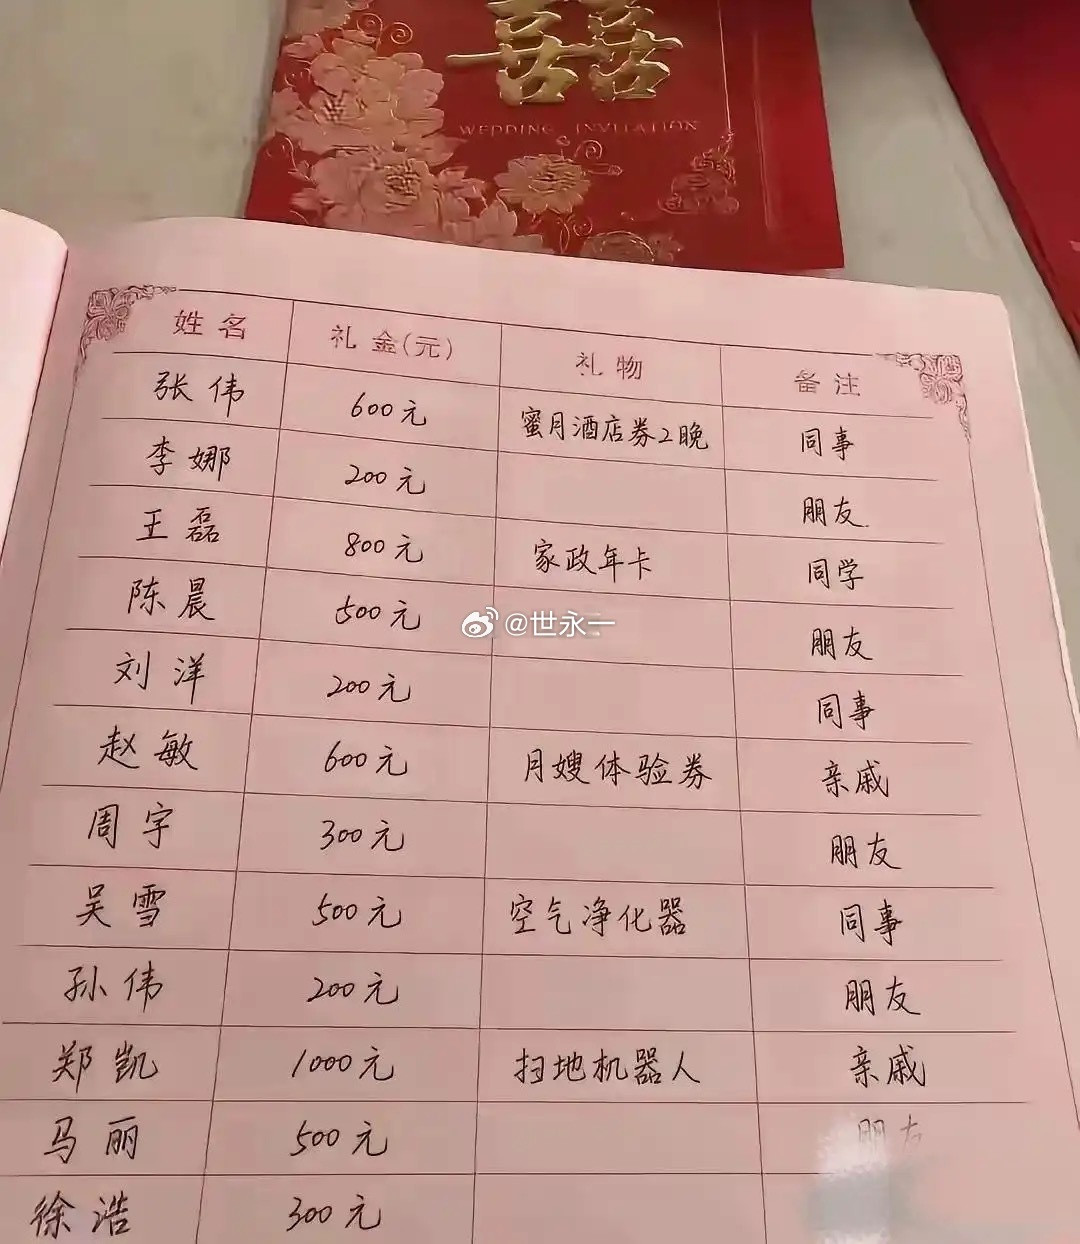 囍
WEDDING INVITATION
姓名 礼金(元) 礼物 备注
张伟 600元 蜜月酒店券2晚 同事
李娜 200元 朋友
王磊 800元 家政年卡 同学
陈晨 500元 朋友
@世永一
刘洋 200元 同事
赵敏 600元 月嫂体验券 亲戚
周宇 300元 朋友
吴雪 500元 空气净化器 同事
孙伟 200元 朋友
郑凯 1000元 扫地机器人 亲戚
马丽 500元 朋友
徐浩 300元